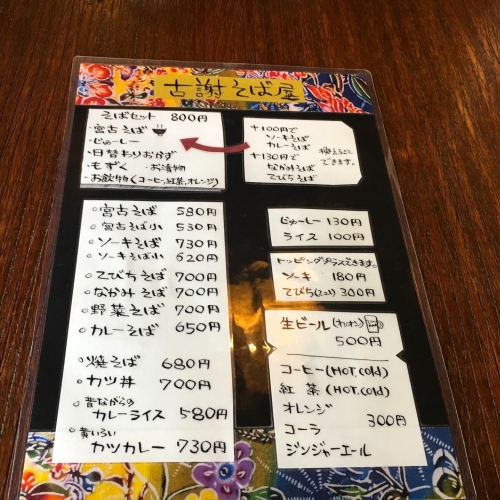 古謝そば屋
そばセット 800円
・宮古そば
・じゅーしー
・日替わりおかず
・もずく ・お漬物
・お飲物(コーヒー,紅茶,オレンジ)
+100円で
ソーキそば
カレーそば
+130円で
なかみそば
てびちそば
換えることできます。
○宮古そば 580円
○宮古そば小 530円
○ソーキそば 730円
○ソーキそば小 620円
○てびちそば 700円
○なかみそば 700円
○野菜そば 700円
○カレーそば 650円
○焼そば 680円
○カツ丼 700円
○昔ながらの
カレーライス 580円
○黄いろい
カツカレー 730円
じゅーしー 130円
ライス 100円
トッピングプラスできます。
ソーキ 180円
てびち(2コ) 300円
生ビール(オリオン)
500円
コーヒー(HOT,cold)
紅茶(HOT,cold)
オレンジ
コーラ 300円
ジンジャーエール